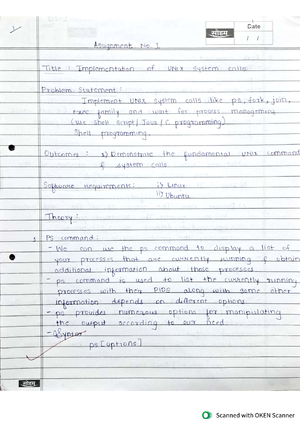 सोहम्
Date
/ /
Assignment No. 1
Title : Implementation of Unix system calls
Problem Statement :
Implement Unix system calls like ps, fork, join,
exec family and wait for process management
(use shell script / Java / C programming)
Shell programming.
Outcomes : 1) Demonstrate the fundamental Unix command
& system calls
Software Requirements : i) Linux
ii) Ubuntu
Theory :
1 PS command :
- We can use the ps command to display a list of
your processes that are currently running & obtain
additional information about those processes
- ps command is used to list the currently running
processes with their PIDS along with some other
information depends on different options
- ps provides numerous options for manipulating
the output according to our need
- Syntax -
ps [options]
सोहम्
Scanned with OKEN Scanner